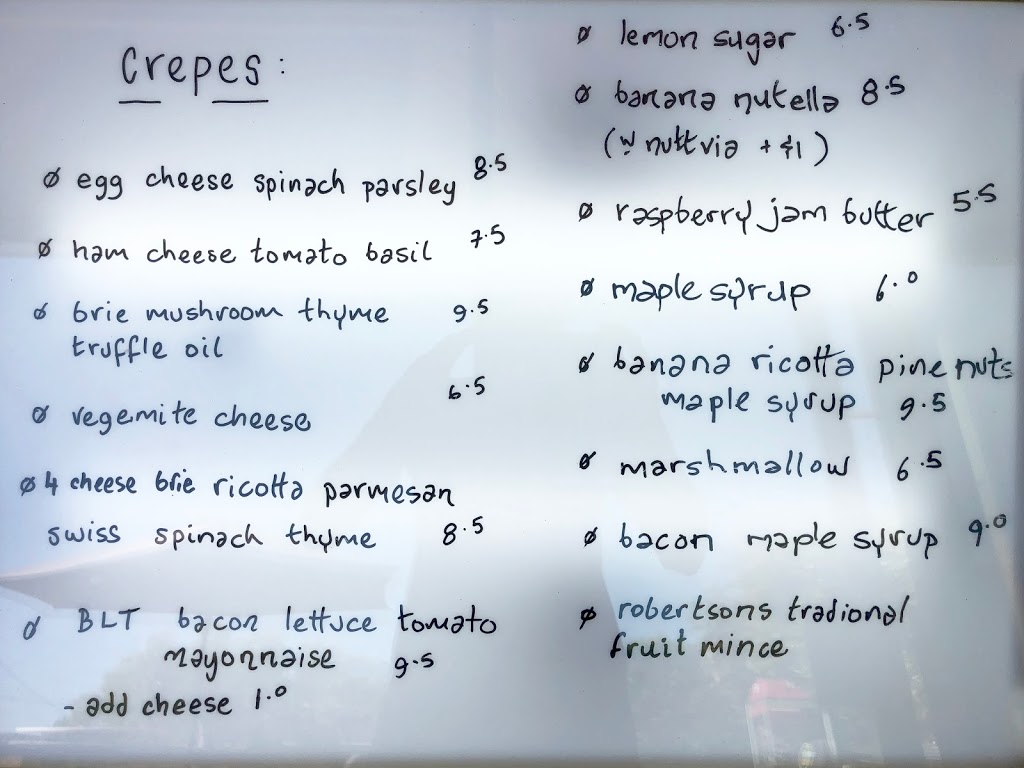 Crepes:
ø egg cheese spinach parsley 8.5
ø ham cheese tomato basil 7.5
ø brie mushroom thyme 9.5
truffle oil
ø vegemite cheese 6.5
ø 4 cheese brie ricotta parmesan
swiss spinach thyme 8.5
ø BLT bacon lettuce tomato
mayonnaise 9.5
- add cheese 1.0
ø lemon sugar 6.5
ø banana nutella 8.5
(w nuttvia + $1)
ø raspberry jam butter 5.5
ø maple syrup 6.0
ø banana ricotta pine nuts
maple syrup 9.5
ø marshmallow 6.5
ø bacon maple syrup 9.0
ø robertsons tradional
fruit mince